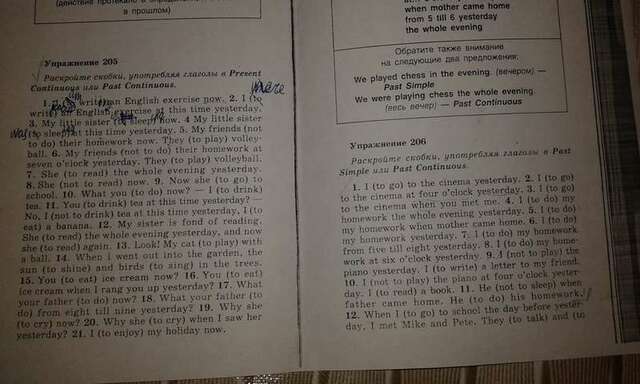 (действие протекало в определённое
в прошлом)
Упражнение 205
Раскройте скобки, употребляя глаголы в Present
Continuous или Past Continuous.
were
1. I (to write) an English exercise now. 2. I (to
write) an English exercise at this time yesterday.
3. My little sister (to sleep) now. 4 My little sister
(to sleep) at this time yesterday. 5. My friends (not
to do) their homework now. They (to play) volley-
ball. 6. My friends (not to do) their homework at
seven o'clock yesterday. They (to play) volleyball.
7. She (to read) the whole evening yesterday.
8. She (not to read) now. 9. Now she (to go) to
school. 10. What you (to do) now? — I (to drink)
tea. 11. You (to drink) tea at this time yesterday? —
No, I (not to drink) tea at this time yesterday, I (to
eat) a banana. 12. My sister is fond of reading.
She (to read) the whole evening yesterday, and now
she (to read) again. 13. Look! My cat (to play) with
a ball. 14. When I went out into the garden, the
sun (to shine) and birds (to sing) in the trees.
15. You (to eat) ice cream now? 16. You (to eat)
ice cream when I rang you up yesterday? 17. What
your father (to do) now? 18. What your father (to
do) from eight till nine yesterday? 19. Why she
(to cry) now? 20. Why she (to cry) when I saw her
yesterday? 21. I (to enjoy) my holiday now.
when mother came home
from 5 till 6 yesterday
the whole evening
Обратите также внимание
на следующие два предложения:
We played chess in the evening. (вечером) —
Past Simple
We were playing chess the whole evening
(весь вечер) — Past Continuous
Упражнение 206
Раскройте скобки, употребляя глаголы в Past
Simple или Past Continuous.
1. I (to go) to the cinema yesterday. 2. I (to go)
to the cinema at four o'clock yesterday. 3. I (to go)
to the cinema when you met me. 4. I (to do) my
homework the whole evening yesterday. 5. I (to do)
my homework when mother came home. 6. I (to do)
my homework yesterday. 7. I (to do) my homework
from five till eight yesterday. 8. I (to do) my home-
work at six o'clock yesterday. 9. I (not to play) the
piano yesterday. I (to write) a letter to my friend.
10. I (not to play) the piano at four o'clock yester-
day. I (to read) a book. 11. He (not to sleep) when
father came home. He (to do) his homework.
12. When I (to go) to school the day before yester-
day, I met Mike and Pete. They (to talk) and (to